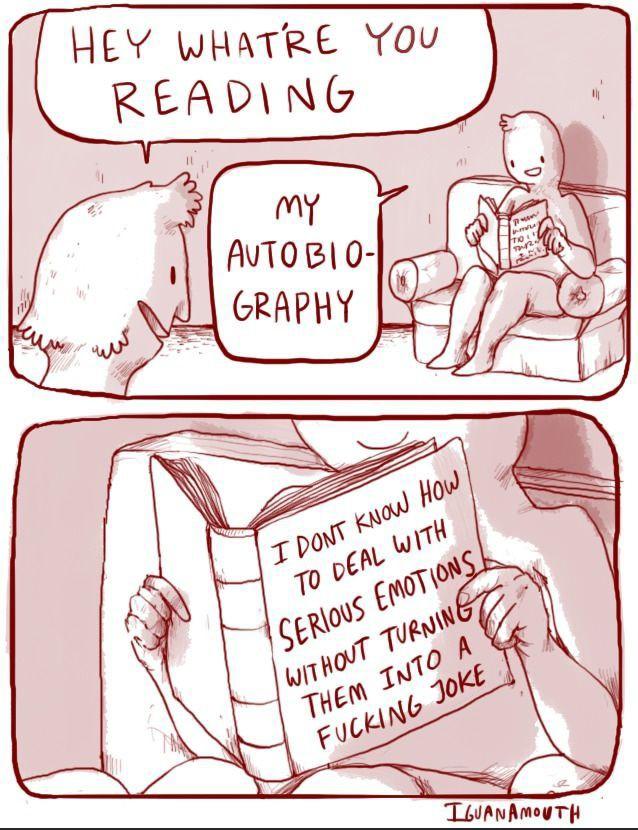 HEY WHAT'RE YOU
READING
MY
AUTOBIO-
GRAPHY
I DONT KNOW HOW
TO DEAL WITH
SERIOUS EMOTIONS
WITHOUT TURNING
THEM INTO A
FUCKING JOKE
IGUANAMOUTH